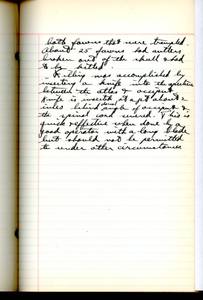 both fawns that were trampled.
About 25 fawns had antlers
broken out of the skull & had
to be killed
Killing was accomplished by
inserting a knife into the
between the atlas & occiput.
Knife is inserted at pt about 2
inches behind angle of occiput &
the spinal cord severed. This is
quick & effective when done by a
good operator with a long blade
but should not be permitted
to under other circumstances